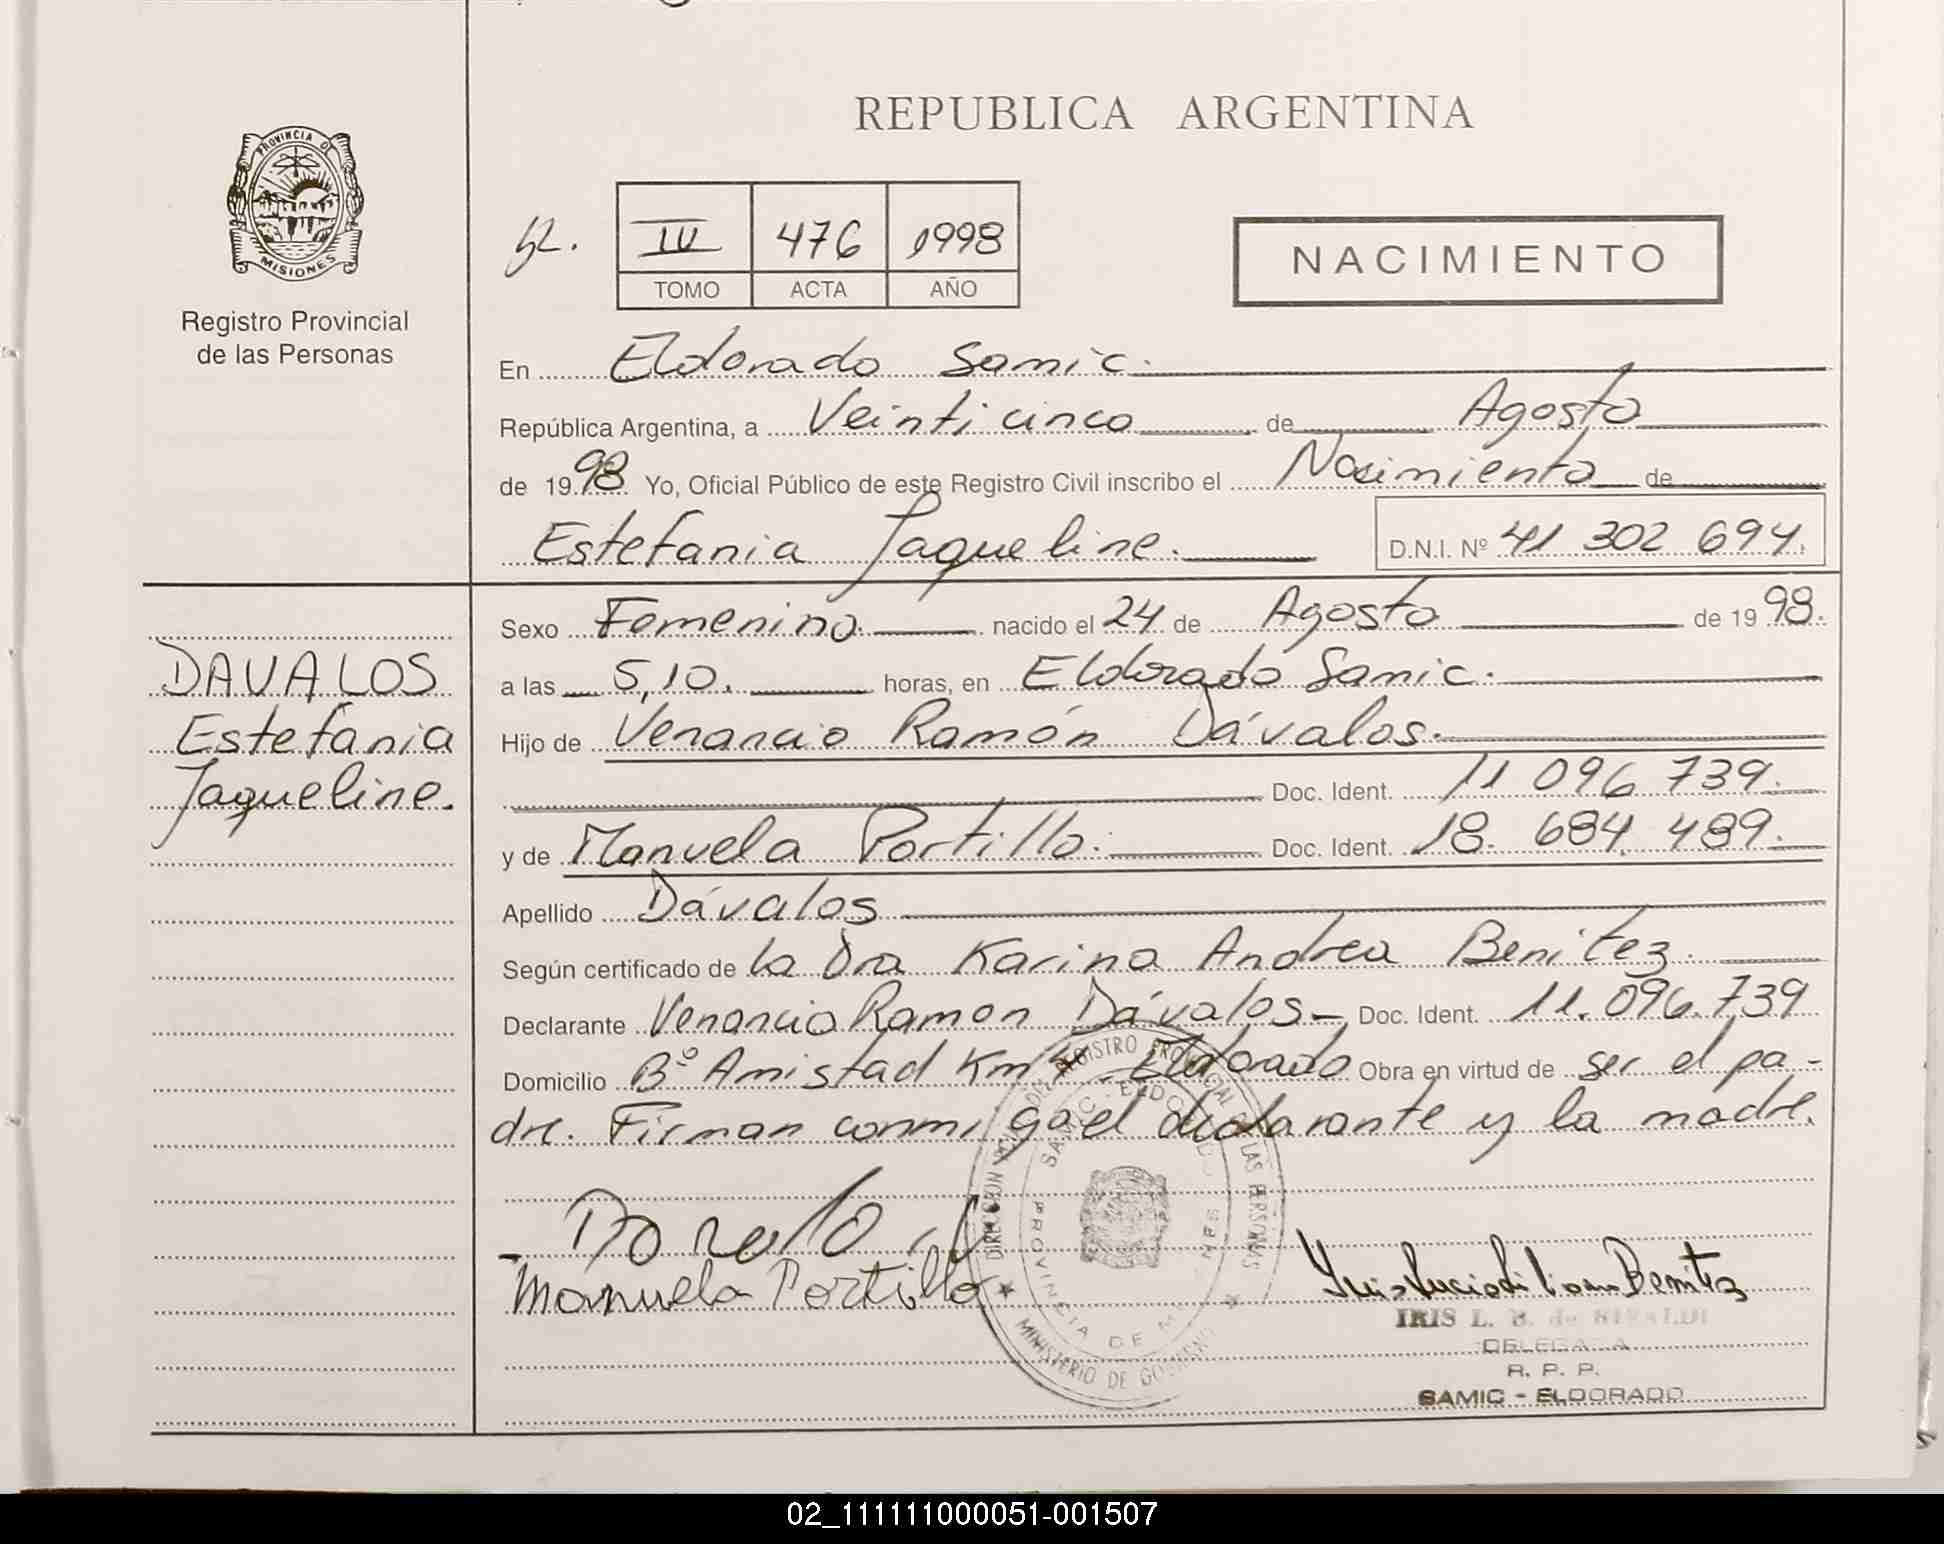 REPUBLICA ARGENTINA
PROVINCIA DE
MISIONES
Registro Provincial
de las Personas
IV 476 1998
TOMO ACTA AÑO
NACIMIENTO
En Eldorado Samic.
República Argentina, a Veinticinco de Agosto
de 1998 Yo, Oficial Público de este Registro Civil inscribo el Nacimiento de
Estefania Jaqueline. D.N.I. Nº 41 302 694.
Sexo Femenino. nacido el 24 de Agosto de 1998.
DAVALOS
Estefania
Jaqueline.
a las 5,10. horas, en Eldorado Samic.
Hijo de Venancio Ramón Dávalos.
Doc. Ident. 11 096 739.
y de Manuela Portillo. Doc. Ident. 18. 684. 489.
Apellido Dávalos
Según certificado de la Dra Karina Andrea Benitez.
Declarante Venancio Ramon Dávalos- Doc. Ident. 11.096.739
Domicilio Bº Amistad Km 4. Eldorado Obra en virtud de ser el pa-
dre. Firman conmigo el declarante y la madre.
Manuela Portillo
DIRECCION DEL REGISTRO PROVINCIAL DE LAS PERSONAS
SAMIC - ELDORADO
PROVINCIA DE
MINISTERIO DE GOBIERNO
Benitez
IRIS L. B. de
DELEGADA
R. P. P.
SAMIC - ELDORADO
02_111111000051-001507